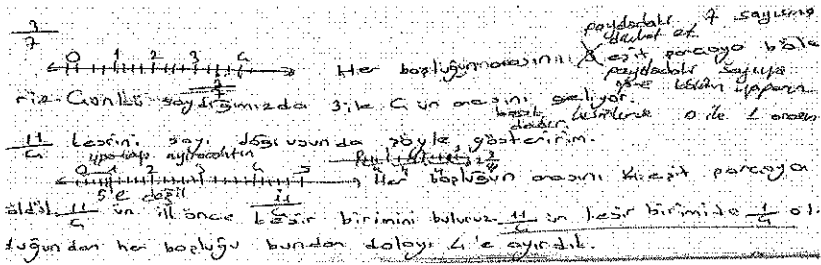 3/7
paydadaki 7 sayısına dikkat et
0 1 2 3 4
Her boşluğun arasını eşit parçaya böle
paydadaki sayıya göre
riz. Çünkü saydığımızda 3 ile 4 ün arasını geliyor.
basit kesirlerse 0 ile 1 arası
11/4 kesrini sayı doğrusunda şöyle gösteririm.
0 1 2 3 4 5
Her boşluğun arasını 4 eşit parçaya
5'e değil 11/4
böldük. 11/4 ün ilk önce kesir birimini buluruz. 11/4 in kesir birimide 1/4 ol.
duğundan her boşluğu bundan dolayı 4'e ayırdık.